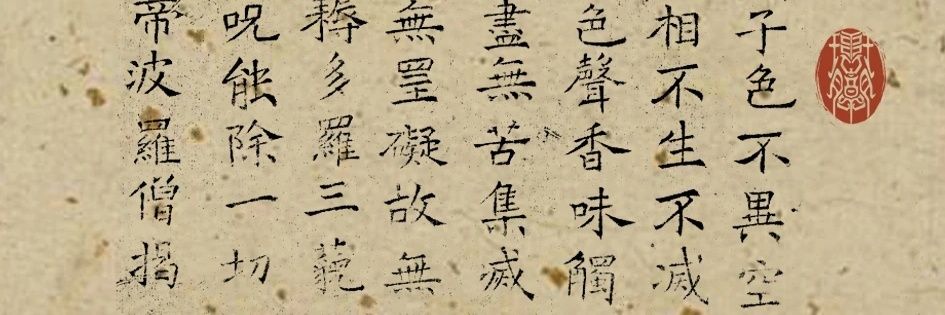 子色不異空
相不生不滅
色聲香味觸
盡無苦集滅
無罣礙故無
耨多羅三藐
呪能除一切
帝波羅僧揭